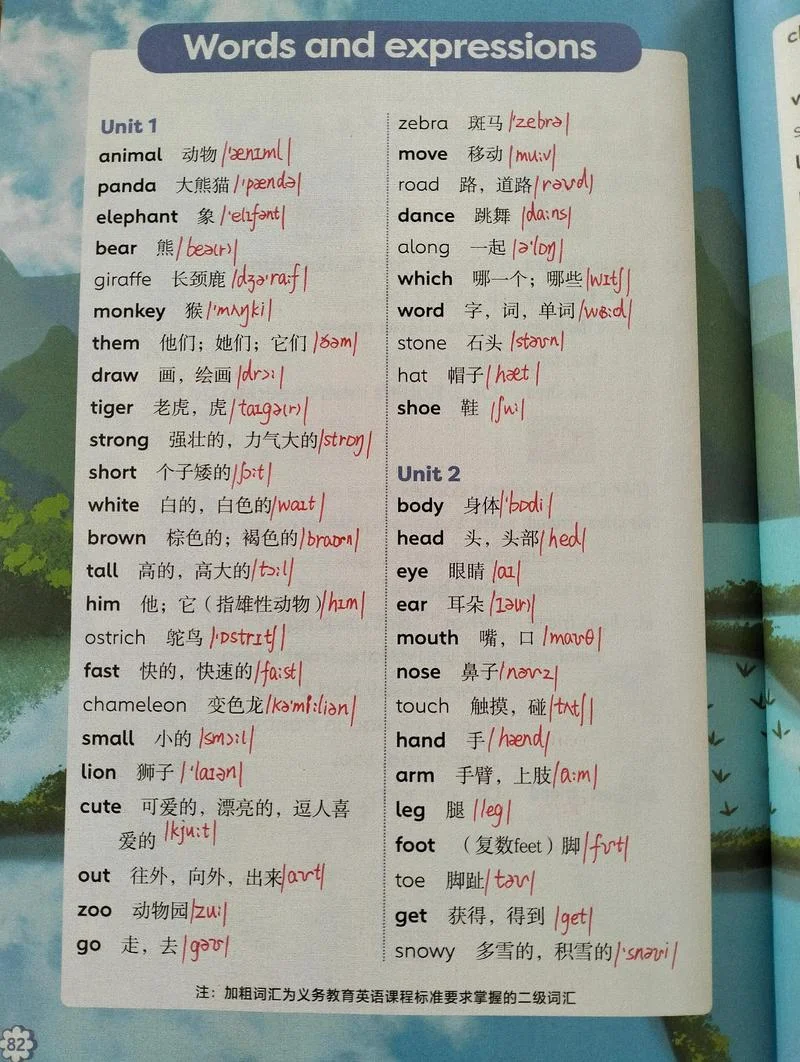 Words and expressions
Unit 1
animal 动物 /'ænɪml/
panda 大熊猫 /'pændə/
elephant 象 /'elɪfənt/
bear 熊 /beə(r)/
giraffe 长颈鹿 /dʒə'rɑ:f/
monkey 猴 /'mʌŋki/
them 他们；她们；它们 /ðəm/
draw 画，绘画 /drɔ:/
tiger 老虎，虎 /taɪgə(r)/
strong 强壮的，力气大的 /strɒŋ/
short 个子矮的 /ʃɔ:t/
white 白的，白色的 /waɪt/
brown 棕色的；褐色的 /braʊn/
tall 高的，高大的 /tɔ:l/
him 他；它（指雄性动物） /hɪm/
ostrich 鸵鸟 /'ɒstrɪtʃ/
fast 快的，快速的 /fɑ:st/
chameleon 变色龙 /kə'mi:liən/
small 小的 /smɔ:l/
lion 狮子 /'laɪən/
cute 可爱的，漂亮的，逗人喜
爱的 /kju:t/
out 往外，向外，出来 /aʊt/
zoo 动物园 /zu:/
go 走，去 /gəʊ/
zebra 斑马 /'zebrə/
move 移动 /mu:v/
road 路，道路 /rəʊd/
dance 跳舞 /dɑ:ns/
along 一起 /ə'lɒŋ/
which 哪一个；哪些 /wɪtʃ/
word 字，词，单词 /wɜ:d/
stone 石头 /stəʊn/
hat 帽子 /hæt/
shoe 鞋 /ʃu:/
Unit 2
body 身体 /'bɒdi/
head 头，头部 /hed/
eye 眼睛 /aɪ/
ear 耳朵 /ɪə(r)/
mouth 嘴，口 /maʊθ/
nose 鼻子 /nəʊz/
touch 触摸，碰 /tʌtʃ/
hand 手 /hænd/
arm 手臂，上肢 /ɑ:m/
leg 腿 /leg/
foot （复数feet）脚 /fʊt/
toe 脚趾 /təʊ/
get 获得，得到 /get/
snowy 多雪的，积雪的 /'snəʊi/
注：加粗词汇为义务教育英语课程标准要求掌握的二级词汇
82